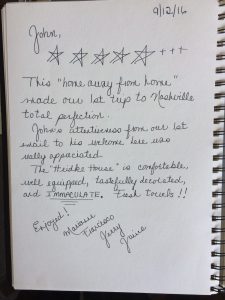 9/12/16
John,
☆ ☆ ☆ ☆ ☆ +++
This "home away from home"
made our 1st trip to Nashville
total perfection.
John's attentiveness from our 1st
email to his welcome here was
really appreciated.
The "Heidke House" is comfortable,
well equipped, tastefully decorated,
and IMMACULATE. Fresh towels!!
Enjoyed!
Jerry